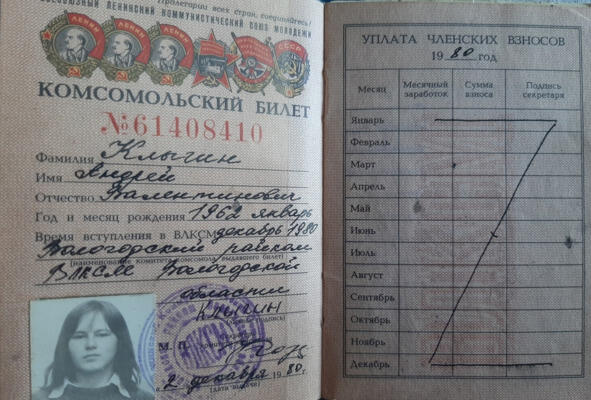 Пролетарии всех стран, соединяйтесь!
ВСЕСОЮЗНЫЙ ЛЕНИНСКИЙ КОММУНИСТИЧЕСКИЙ СОЮЗ МОЛОДЕЖИ
ЛЕНИН ЛЕНИН ЛЕНИН СССР
КОМСОМОЛЬСКИЙ БИЛЕТ
№61408410
Фамилия Клыгин
Имя Андрей
Отчество Валентинович
Год и месяц рождения 1962 январь
Время вступления в ВЛКСМ декабрь 1980
Вологодский райком
(наименование комитета комсомола, выдавшего билет)
ВЛКСМ Вологодской
области
Клыгин
М. П.
"2" декабря 1980 г.
(дата выдачи)
УПЛАТА ЧЛЕНСКИХ ВЗНОСОВ
1980 год
Месяц Месячный заработок Сумма взноса Подпись секретаря
Январь
Февраль
Март
Апрель
Май
Июнь
Июль
Август
Сентябрь
Октябрь
Ноябрь
Декабрь